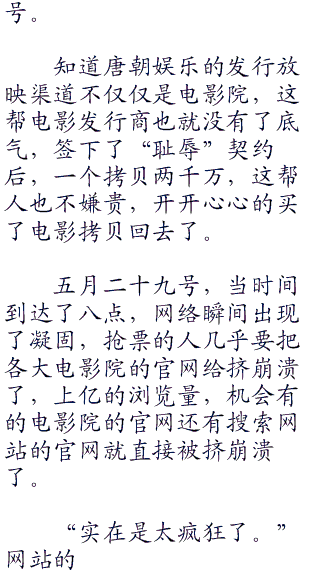 号。
知道唐朝娱乐的发行放
映渠道不仅仅是电影院，这
帮电影发行商也就没有了底
气，签下了“耻辱”契约
后，一个拷贝两千万，这帮
人也不嫌贵，开开心心的买
了电影拷贝回去了。
五月二十九号，当时间
到达了八点，网络瞬间出现
了凝固，抢票的人几乎要把
各大电影院的官网给挤崩溃
了，上亿的浏览量，机会有
的电影院的官网还有搜索网
站的官网就直接被挤崩溃
了。
“实在是太疯狂了。”
网站的